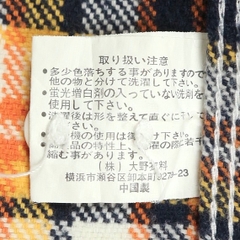 取り扱い注意
●多少色落ちする事がありますので
他の物と分けて洗濯して下さい。
●蛍光増白剤の入っていない洗剤を
使用して下さい。
洗濯後は形を整えて直ぐに
して下さい。
機の使用は 下さい
品の特性上、 若干
縮む事があります。
(株)大野衣料
横浜市瀬谷区卸本町
中国製